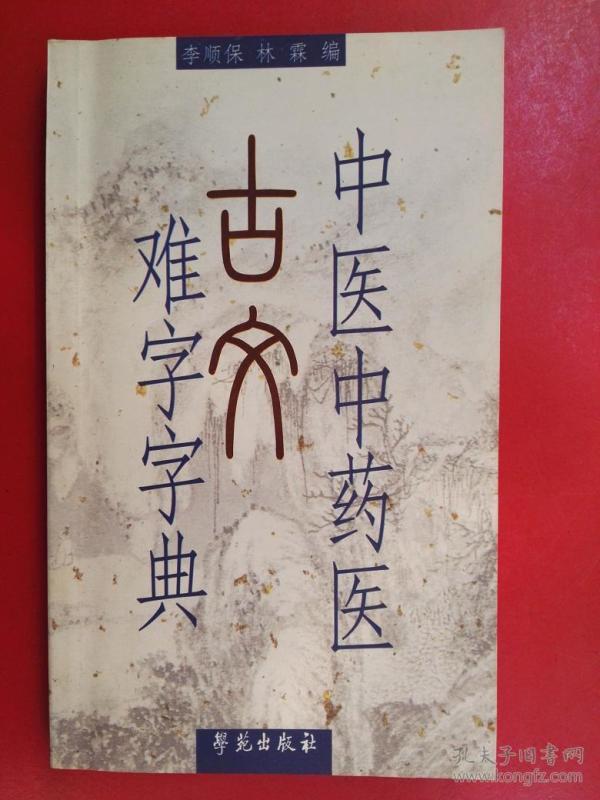 李顺保 林霖 编
中医中药医
古文
难字字典
學苑出版社
孔夫子旧書网
www.kongfz.com